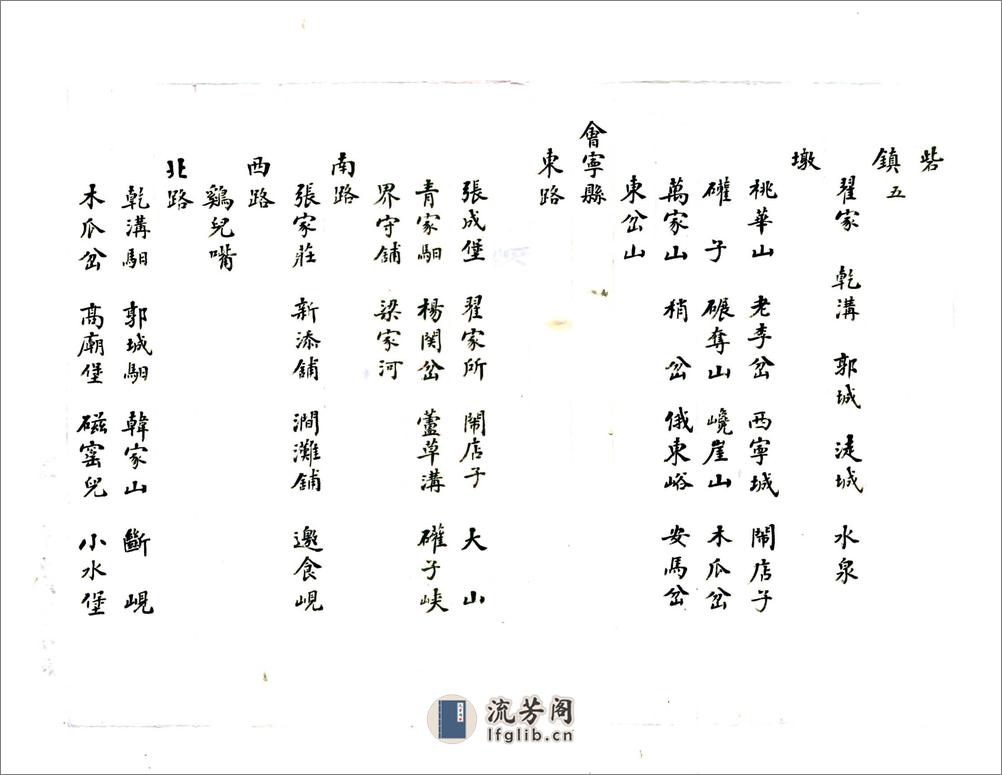 砦
鎮五
翟家 乾溝 郭城 䢖城 水泉
墩
桃華山 老李岔 西寧城 鬧店子
礶子 碾奪山 嶢崖山 木瓜岔
萬家山 稍岔 俄東峪 安馬岔
東岔山
會寧縣
東路
張成堡 翟家所 鬧店子 大山
青家馹 楊関岔 蘆草溝 礶子峡
界守鋪 梁家河
南路
張家莊 新添鋪 澗灘鋪 邀食峴
西路
鷄兒嘴
北路
乾溝馹 郭城馹 韓家山 斷峴
木瓜岔 高廟堡 磁窑兒 小水堡
流芳阁
lfglib.cn